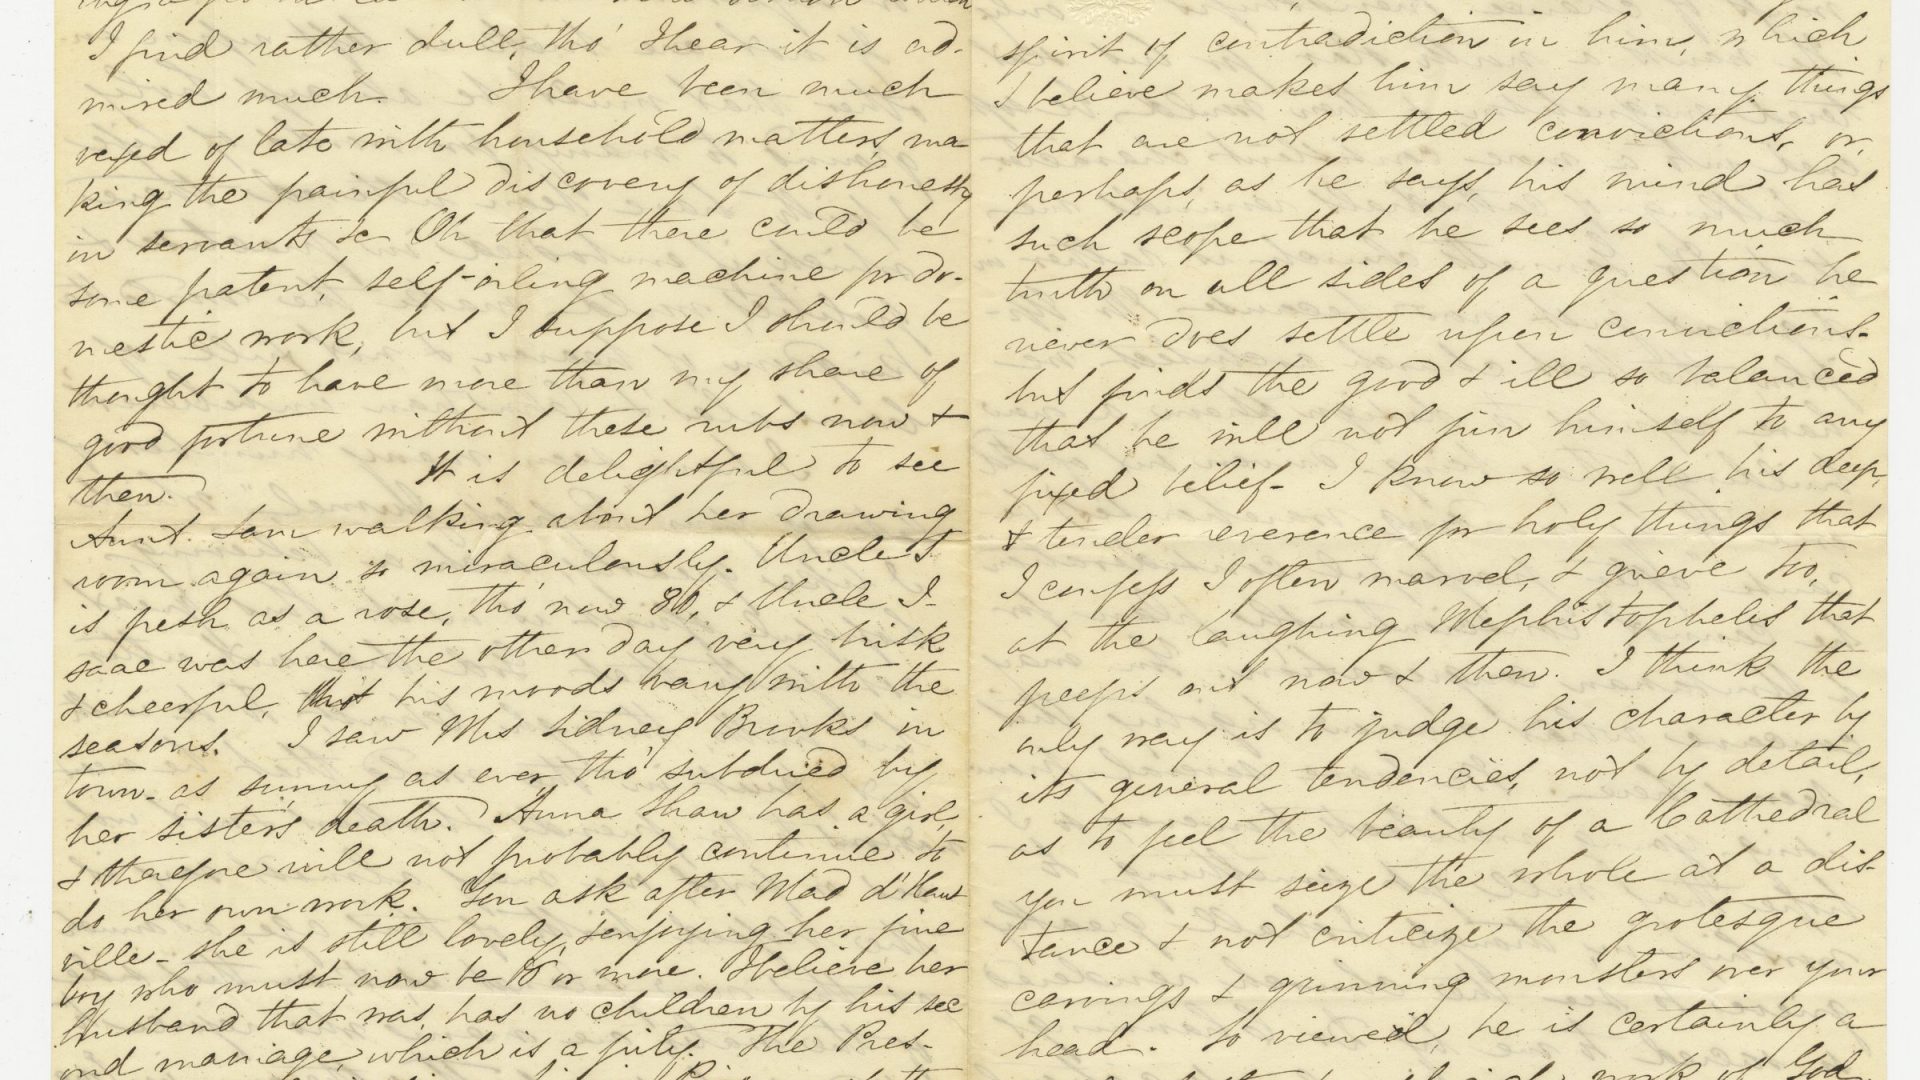 I find rather dull, tho' I hear it is ad-
mired much. I have been much
vexed of late with household matters, ma-
king the painful discovery of dishonesty
in servants &c Oh that there could be
some patent, self-oiling machine for do-
mestic work, but I suppose I should be
thought to have more than my share of
good fortune without these rubs now &
then. It is delightful to see
Aunt Sam walking about her drawing
room again so miraculously. Uncle S
is fresh as a rose, tho' now 80, & Uncle I-
saac was here the other day very brisk
& cheerful, but his moods vary with the
seasons. I saw Mrs Sidney Brooks in
town - as sunny as ever, tho' subdued by
her sister's death. Anna Shaw has a girl,
& therefore will not probably continue to
do her own work. You ask after Mad d'Haut
ville - she is still lovely, & enjoying her fine
boy who must now be 18 or more. I believe her
husband that was, has no children by his sec
ond marriage, which is a pity. The Pres-
spirit of contradiction in him, which
I believe makes him say many things
that are not settled convictions, or,
perhaps, as he says, his mind has
such scope that he sees so much
truth on all sides of a question he
never does settle upon convictions -
but finds the good & ill so balanced
that he will not join himself to any
fixed belief - I know so well his deep,
& tender reverence for holy things that
I confess I often marvel, & grieve too,
at the laughing Mephistopheles that
peeps out now & then. I think the
only way is to judge his character by
its general tendencies, not by detail,
as to feel the beauty of a Cathedral
you must seize the whole at a dis-
tance & not criticize the grotesque
carvings & grinning monsters over your
head. So viewed, he is certainly a
work of God